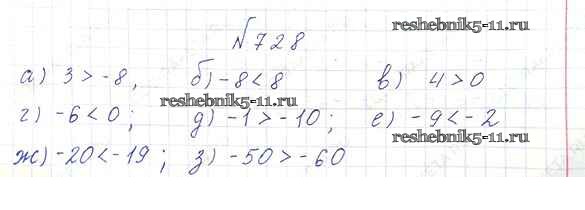 reshebnik5-11.ru
№728
а) 3 > -8, б) -8 < 8 в) 4 > 0
reshebnik5-11.ru
г) -6 < 0; д) -1 > -10; е) -9 < -2
reshebnik5-11.ru
ж) -20 < -19; з) -50 > -60